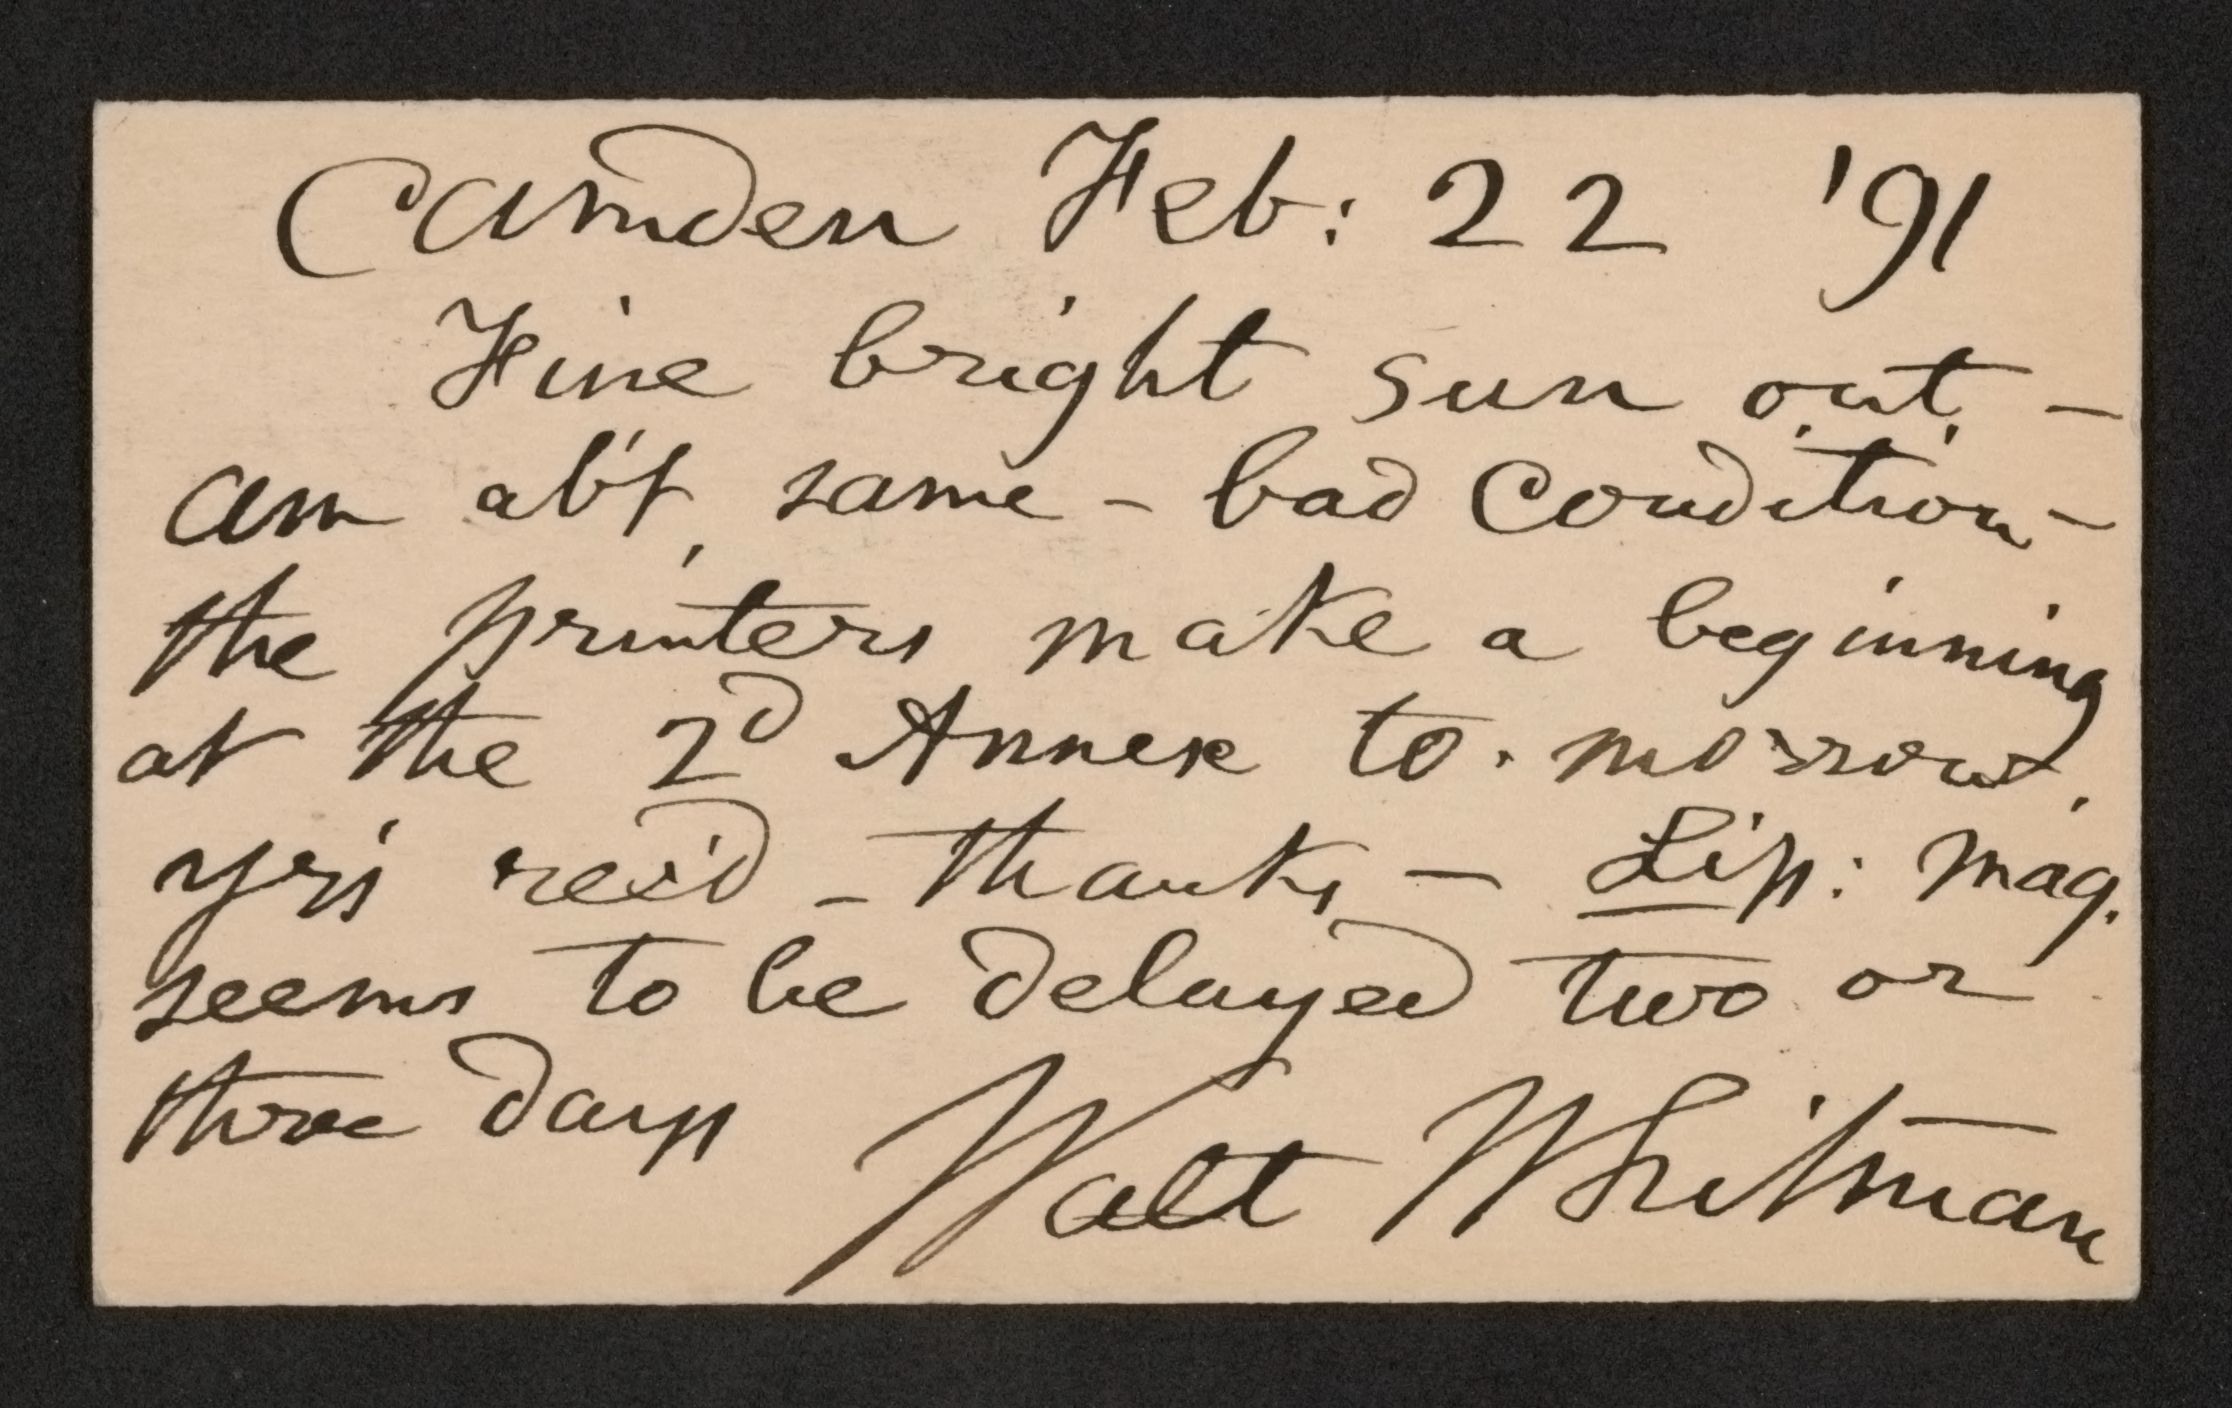 Camden Feb: 22 '91
Fine bright sun out —
am ab't same — bad condition —
the printers make a beginning
at the 2d Annex to-morrow,
yr's rec'd — thanks — Lip: Mag.
seems to be delayed two or
three days Walt Whitman